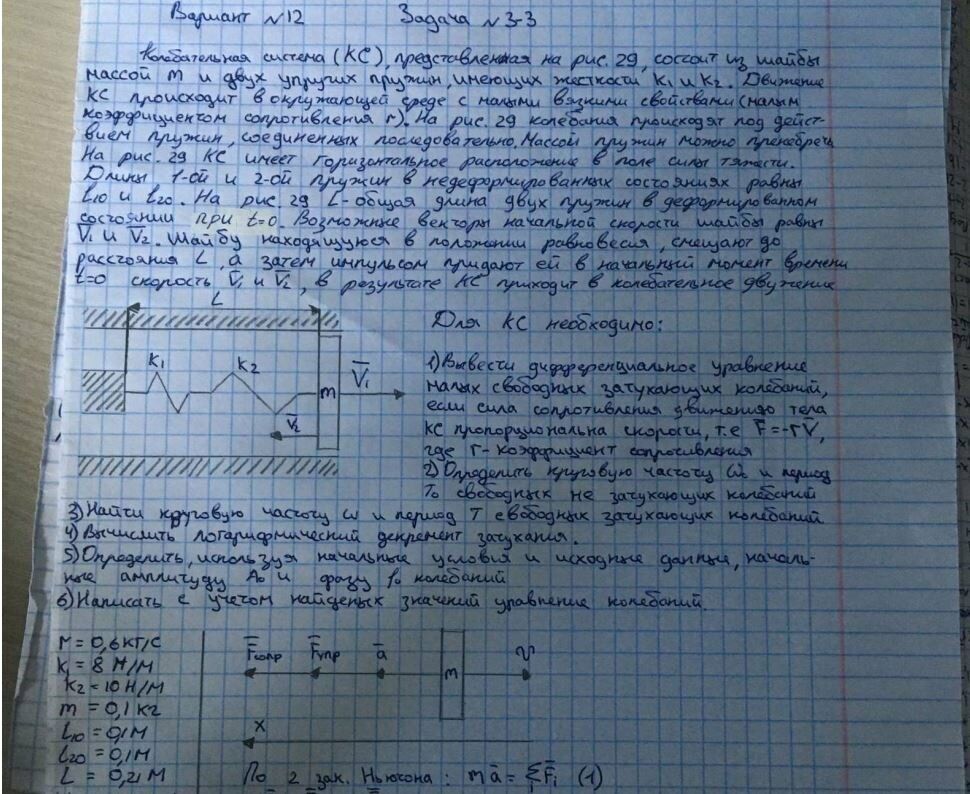 Вариант №12 Задача №3-3
Колебательная система (КС), представленная на рис. 29, состоит из шайбы
массой m и двух упругих пружин, имеющих жесткости k1 и k2. Движение
КС происходит в окружающей среде с малыми вязкими свойствами (малым
коэффициентом сопротивления r). На рис. 29 колебания происходят под дейст-
вием пружин, соединенных последовательно. Массой пружин можно пренебречь
На рис. 29 КС имеет горизонтальное расположение в поле силы тяжести.
Длины 1-ой и 2-ой пружин в недеформированных состояниях равны
l10 и l20. На рис. 29 L - общая длина двух пружин в деформированном
состоянии при t=0. Возможные векторы начальной скорости шайбы равны
V̅1 и V̅2. Шайбу находящуюся в положении равновесия, смещают до
расстояния L, а затем импульсом придают ей в начальный момент времени
t=0 скорость V̅1 и V̅2, в результате КС приходит в колебательное движение
L
k1 k2 m V̅1
V̅2
Для КС необходимо:
1) Вывести дифференциальное уравнение
малых свободных затухающих колебаний,
если сила сопротивления движению тела
КС пропорциональна скорости, т.е F̅=-rV̅,
где r - коэффициент сопротивления
2) Определить круговую частоту ω0 и период
T0 свободных не затухающих колебаний
3) Найти круговую частоту ω и период T свободных затухающих колебаний
4) Вычислить логарифмический декремент затухания.
5) Определить, используя начальные условия и исходные данные, началь-
ные амплитуду A0 и фазу φ0 колебаний
6) Написать с учетом найденых значений уравнение колебаний.
r = 0,6 кг/с
k1 = 8 Н/м
k2 = 10 Н/м
m = 0,1 кг
l10 = 0,1 м
l20 = 0,1 м
L = 0,21 м
F̅сопр F̅упр a̅ m v
x
По 2 зак. Ньютона: ma̅ = ΣF̅i (1)